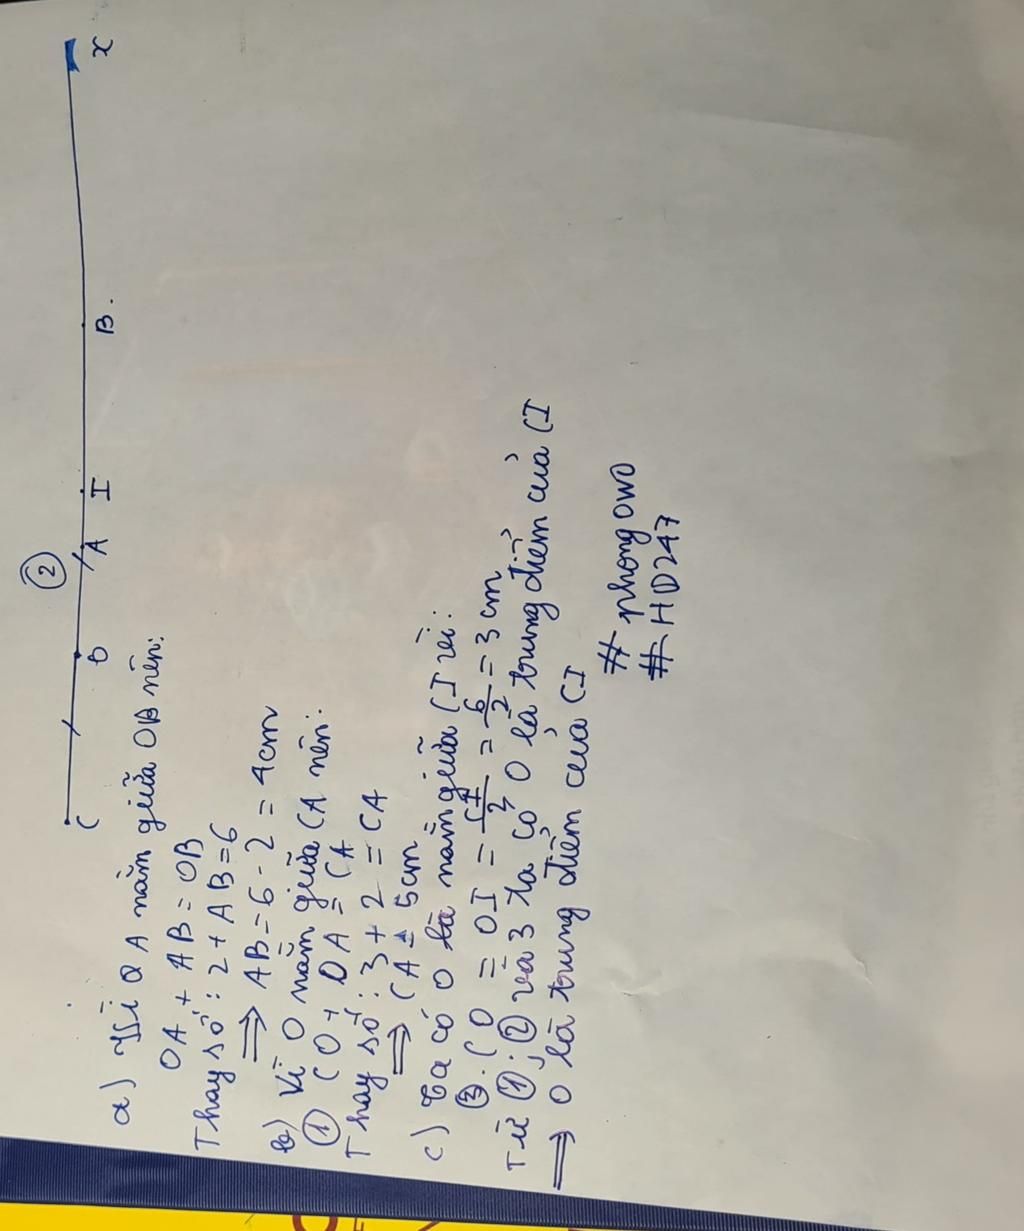 ②
C O A I B . x
a) Vì A nằm giữa OB nên:
OA + AB = OB
Thay số: 2 + AB = 6
⟹ AB = 6 - 2 = 4cm
b) Vì O nằm giữa CA nên:
① CO + OA = CA
Thay số: 3 + 2 = CA
⟹ CA = 5cm
c) Ta có O là nằm giữa CI vì:
③. CO = OI = CI/2 = 6/2 = 3cm
Từ ①; ② và 3 ta có O là trung điểm của CI
⟹ O là trung điểm của CI
# phong OWO
# HD247